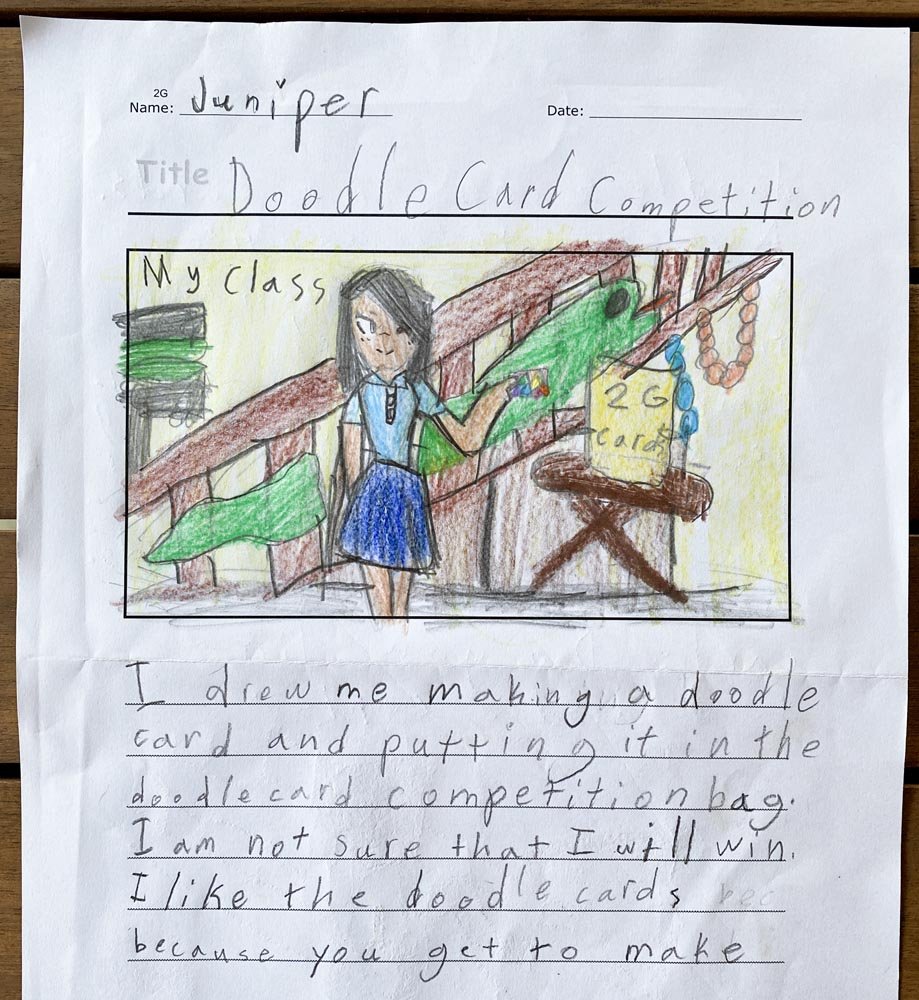 2G
Name: Juniper
Date:
Title Doodle Card Competition
My Class
2G
cards
I drew me making a doodle
card and putting it in the
doodle card competition bag.
I am not sure that I will win.
I like the doodle cards bec
because you get to make